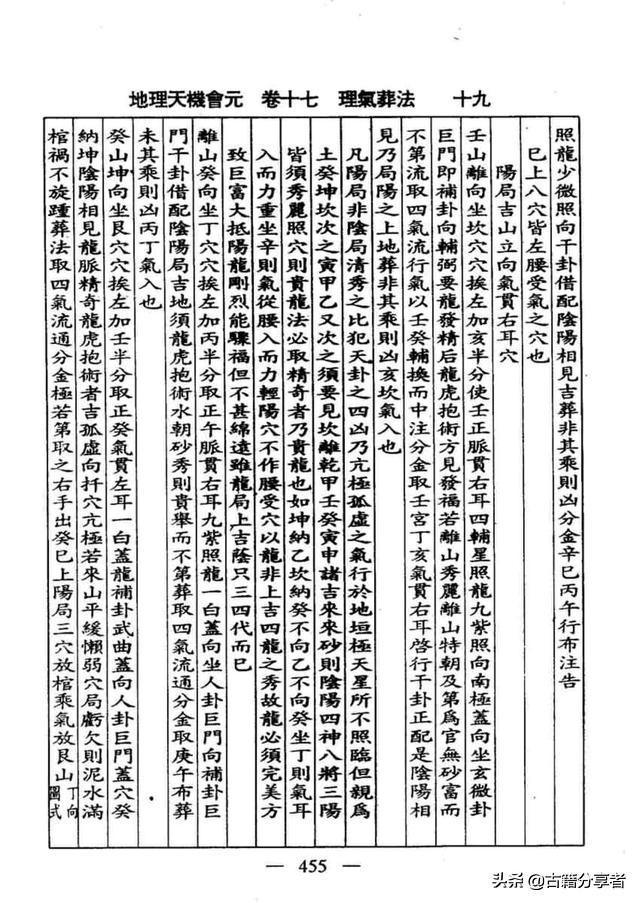 地理天機會元　卷十七　理氣葬法　　十九
照龍少微照向干卦借配陰陽相見吉葬非其乘則凶分金辛巳丙午行布注告
巳上八穴皆左腰受氣之穴也
陽局吉山立向氣貫右耳穴
壬山離向坐坎穴穴挨左加亥半分使壬正脈貫右耳四輔星照龍九紫照向南極蓋向坐玄微卦
巨門即補卦向輔弼要龍發精后龍虎抱術方見發福若離山秀麗離山特朝及第為官無砂富而
不第流取四氣流行氣以壬癸輔換而中注分金取壬宮丁亥氣貫右耳啓行干卦正配是陰陽相
見乃局陽之上地葬非其乘則凶亥坎氣入也
凡陽局非陰局清秀之比犯天卦之四凶乃亢極孤虛之氣行於地垣極天星所不照臨但親為
土癸坤坎次之寅甲乙又次之須要見坎離乾甲壬癸寅申諸吉來來砂則陰陽四神八將三陽
皆須秀麗照穴則貴龍法必取精奇者乃貴龍也如坤納乙坎納癸不向乙不向癸坐丁則氣耳
入而力重坐辛則氣從腰入而力輕陽穴不作腰受穴以龍非上吉四龍之秀故龍必須完美方
致巨富大抵陽龍剛烈能驟福但不甚綿遠雖龍局上吉蔭只三四代而巳
離山癸向坐丁穴穴挨左加丙半分取正午脈貫右耳九紫照龍一白蓋向坐人卦巨門向補卦巨
門干卦借配陰陽局吉地須龍虎抱術水朝砂秀則貴舉而不第葬取四氣流通分金取庚午布葬
未其乘則凶丙丁氣入也
癸山坤向坐艮穴穴挨左加壬半分取正癸氣貫左耳一白蓋龍補卦武曲蓋向人卦巨門蓋穴癸
納坤陰陽相見龍脈精奇龍虎抱術者吉孤虛向扦穴亢極若來山平緩懶弱穴局虧欠則泥水滿
棺禍不旋踵葬法取四氣流通分金極若第取之右手出癸巳上陽局三穴放棺乘氣放艮山丁向圖式
— 455 —
头条 @古籍分享者